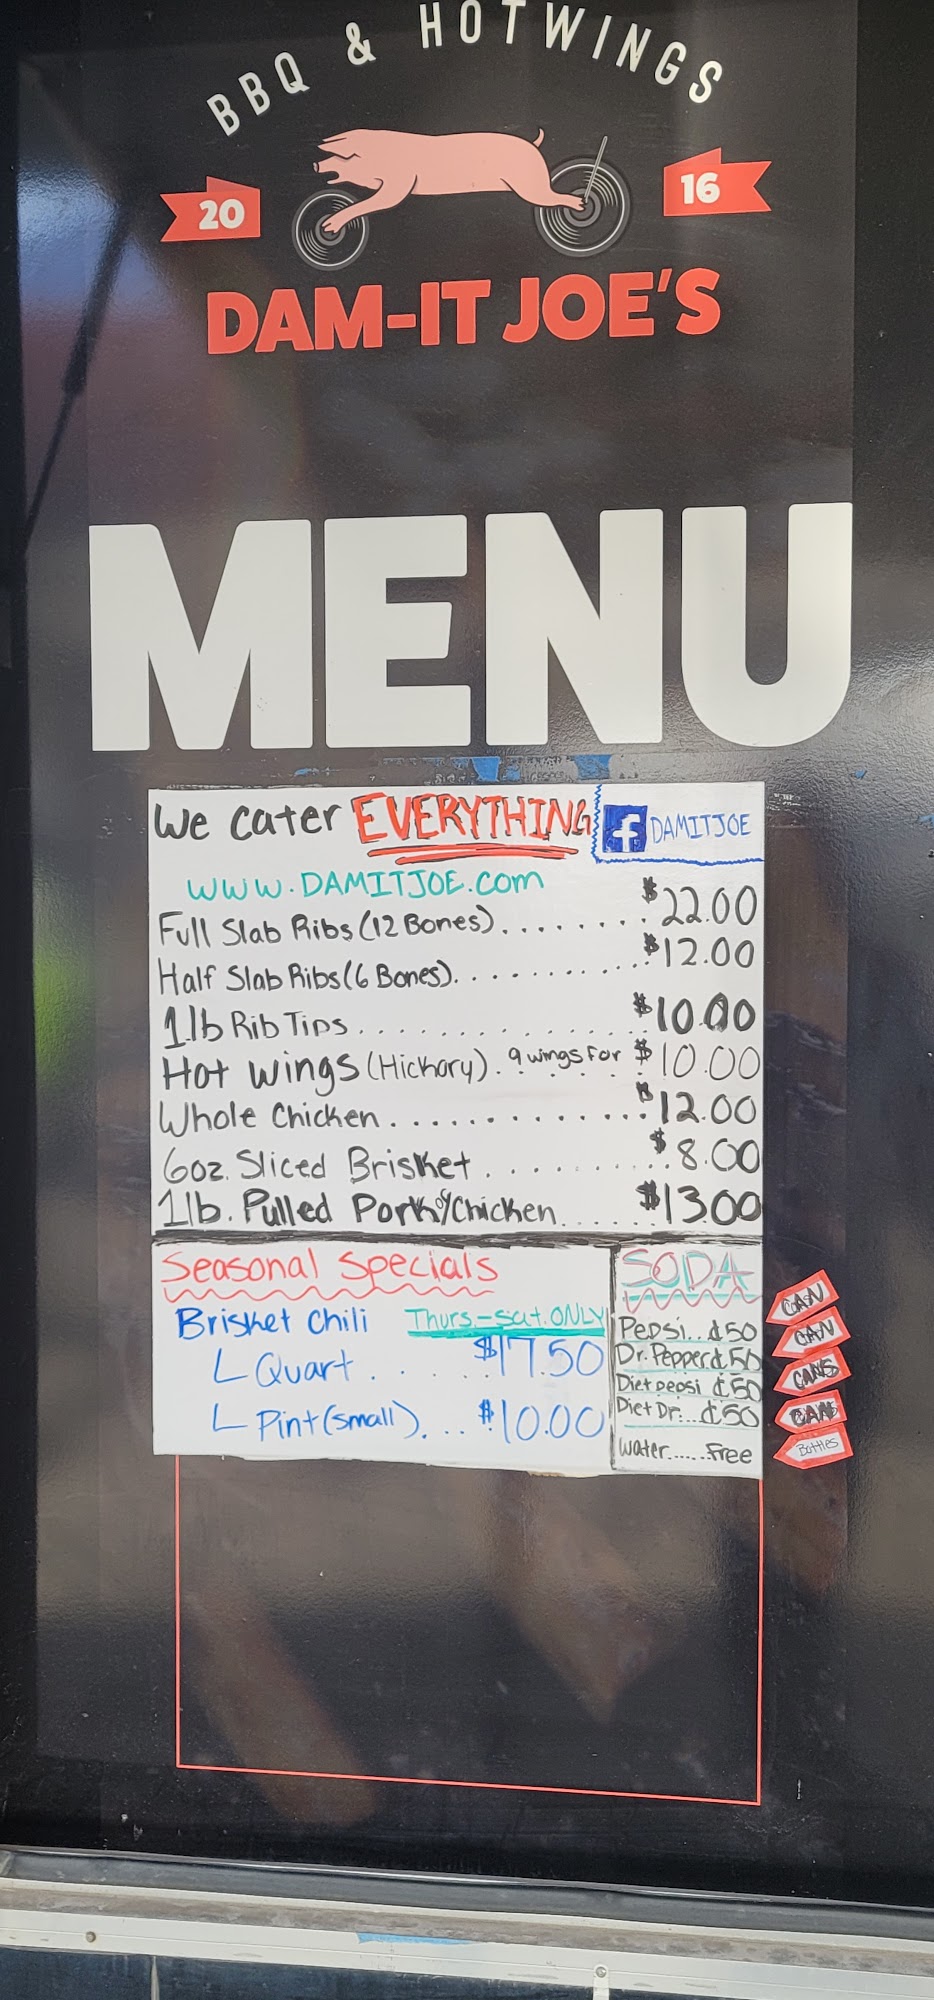 BBQ & HOTWINGS
20 16
DAM-IT JOE'S
MENU
We cater EVERYTHING
DAMITJOE
WWW.DAMITJOE.com
Full Slab Ribs (12 Bones)....... $22.00
Half Slab Ribs (6 Bones).......... $12.00
1lb Rib Tips.............. $10.00
Hot Wings (Hickory). 9 wings for $10.00
Whole Chicken.............. $12.00
6oz. Sliced Brisket.......... $8.00
1lb. Pulled Pork or Chicken...... $13.00
Seasonal Specials
Brisket Chili Thurs.-Sat. ONLY
Quart..... $17.50
Pint (small)... $10.00
SODA
Pepsi.. ¢50 CAN
Dr. Pepper ¢50 CAN
Diet pepsi ¢50 CANS
Diet Dr... ¢50 CAN
Water......Free Bottles